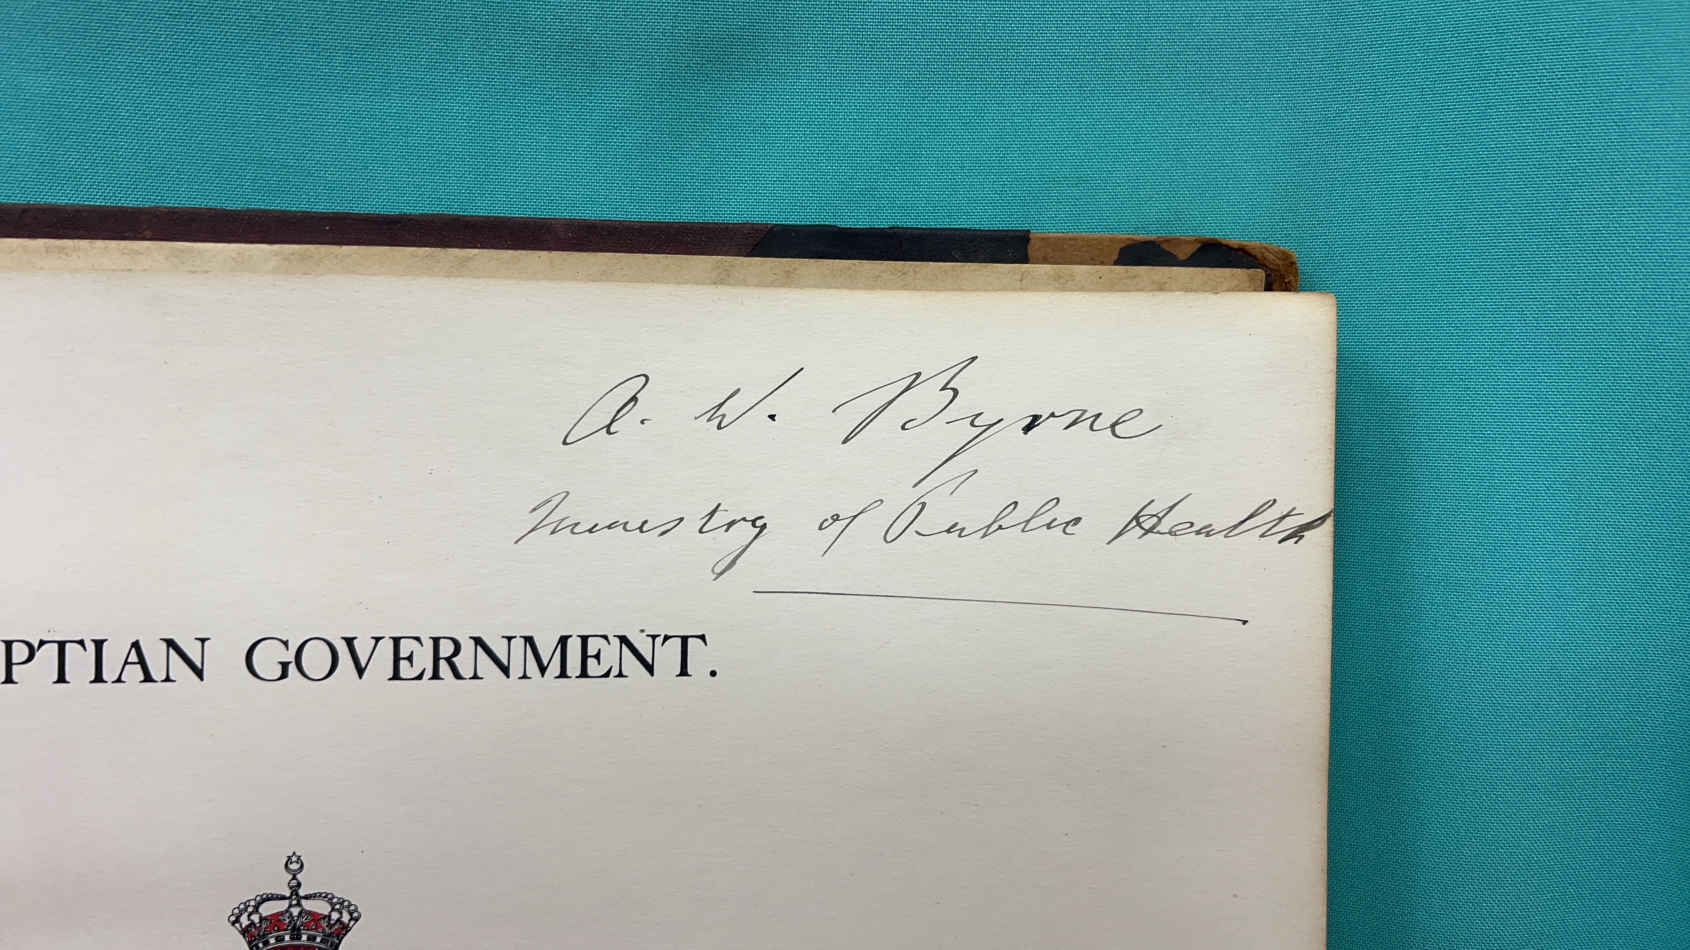 A. W. Byrne
Ministry of Public Health
PTIAN GOVERNMENT.